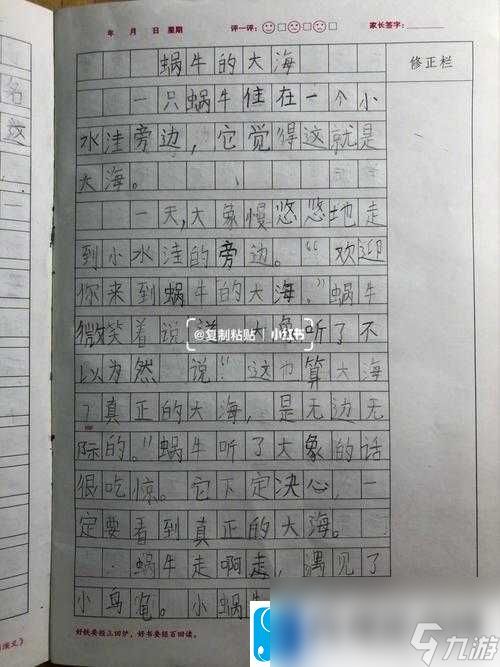 年 月 日 星期 评一评: 家长签字:
蜗牛的大海 修正栏
一只蜗牛住在一个小
水洼旁边，它觉得这就是
大海。
一天，大象慢悠悠地走
到小水洼的旁边。“欢迎
你来到蜗牛的大海，”蜗牛
微笑着说 大象听了不
@复制粘贴 小红书
以为然 说：“这也算大海
？真正的大海，是无边无
际的。”蜗牛听了大象的话
很吃惊。它下定决心，一
定要看到真正的大海。
蜗牛走啊走，遇见了
小乌龟。小蜗牛
好铁要经三回炉，好书要经百回读。
九游